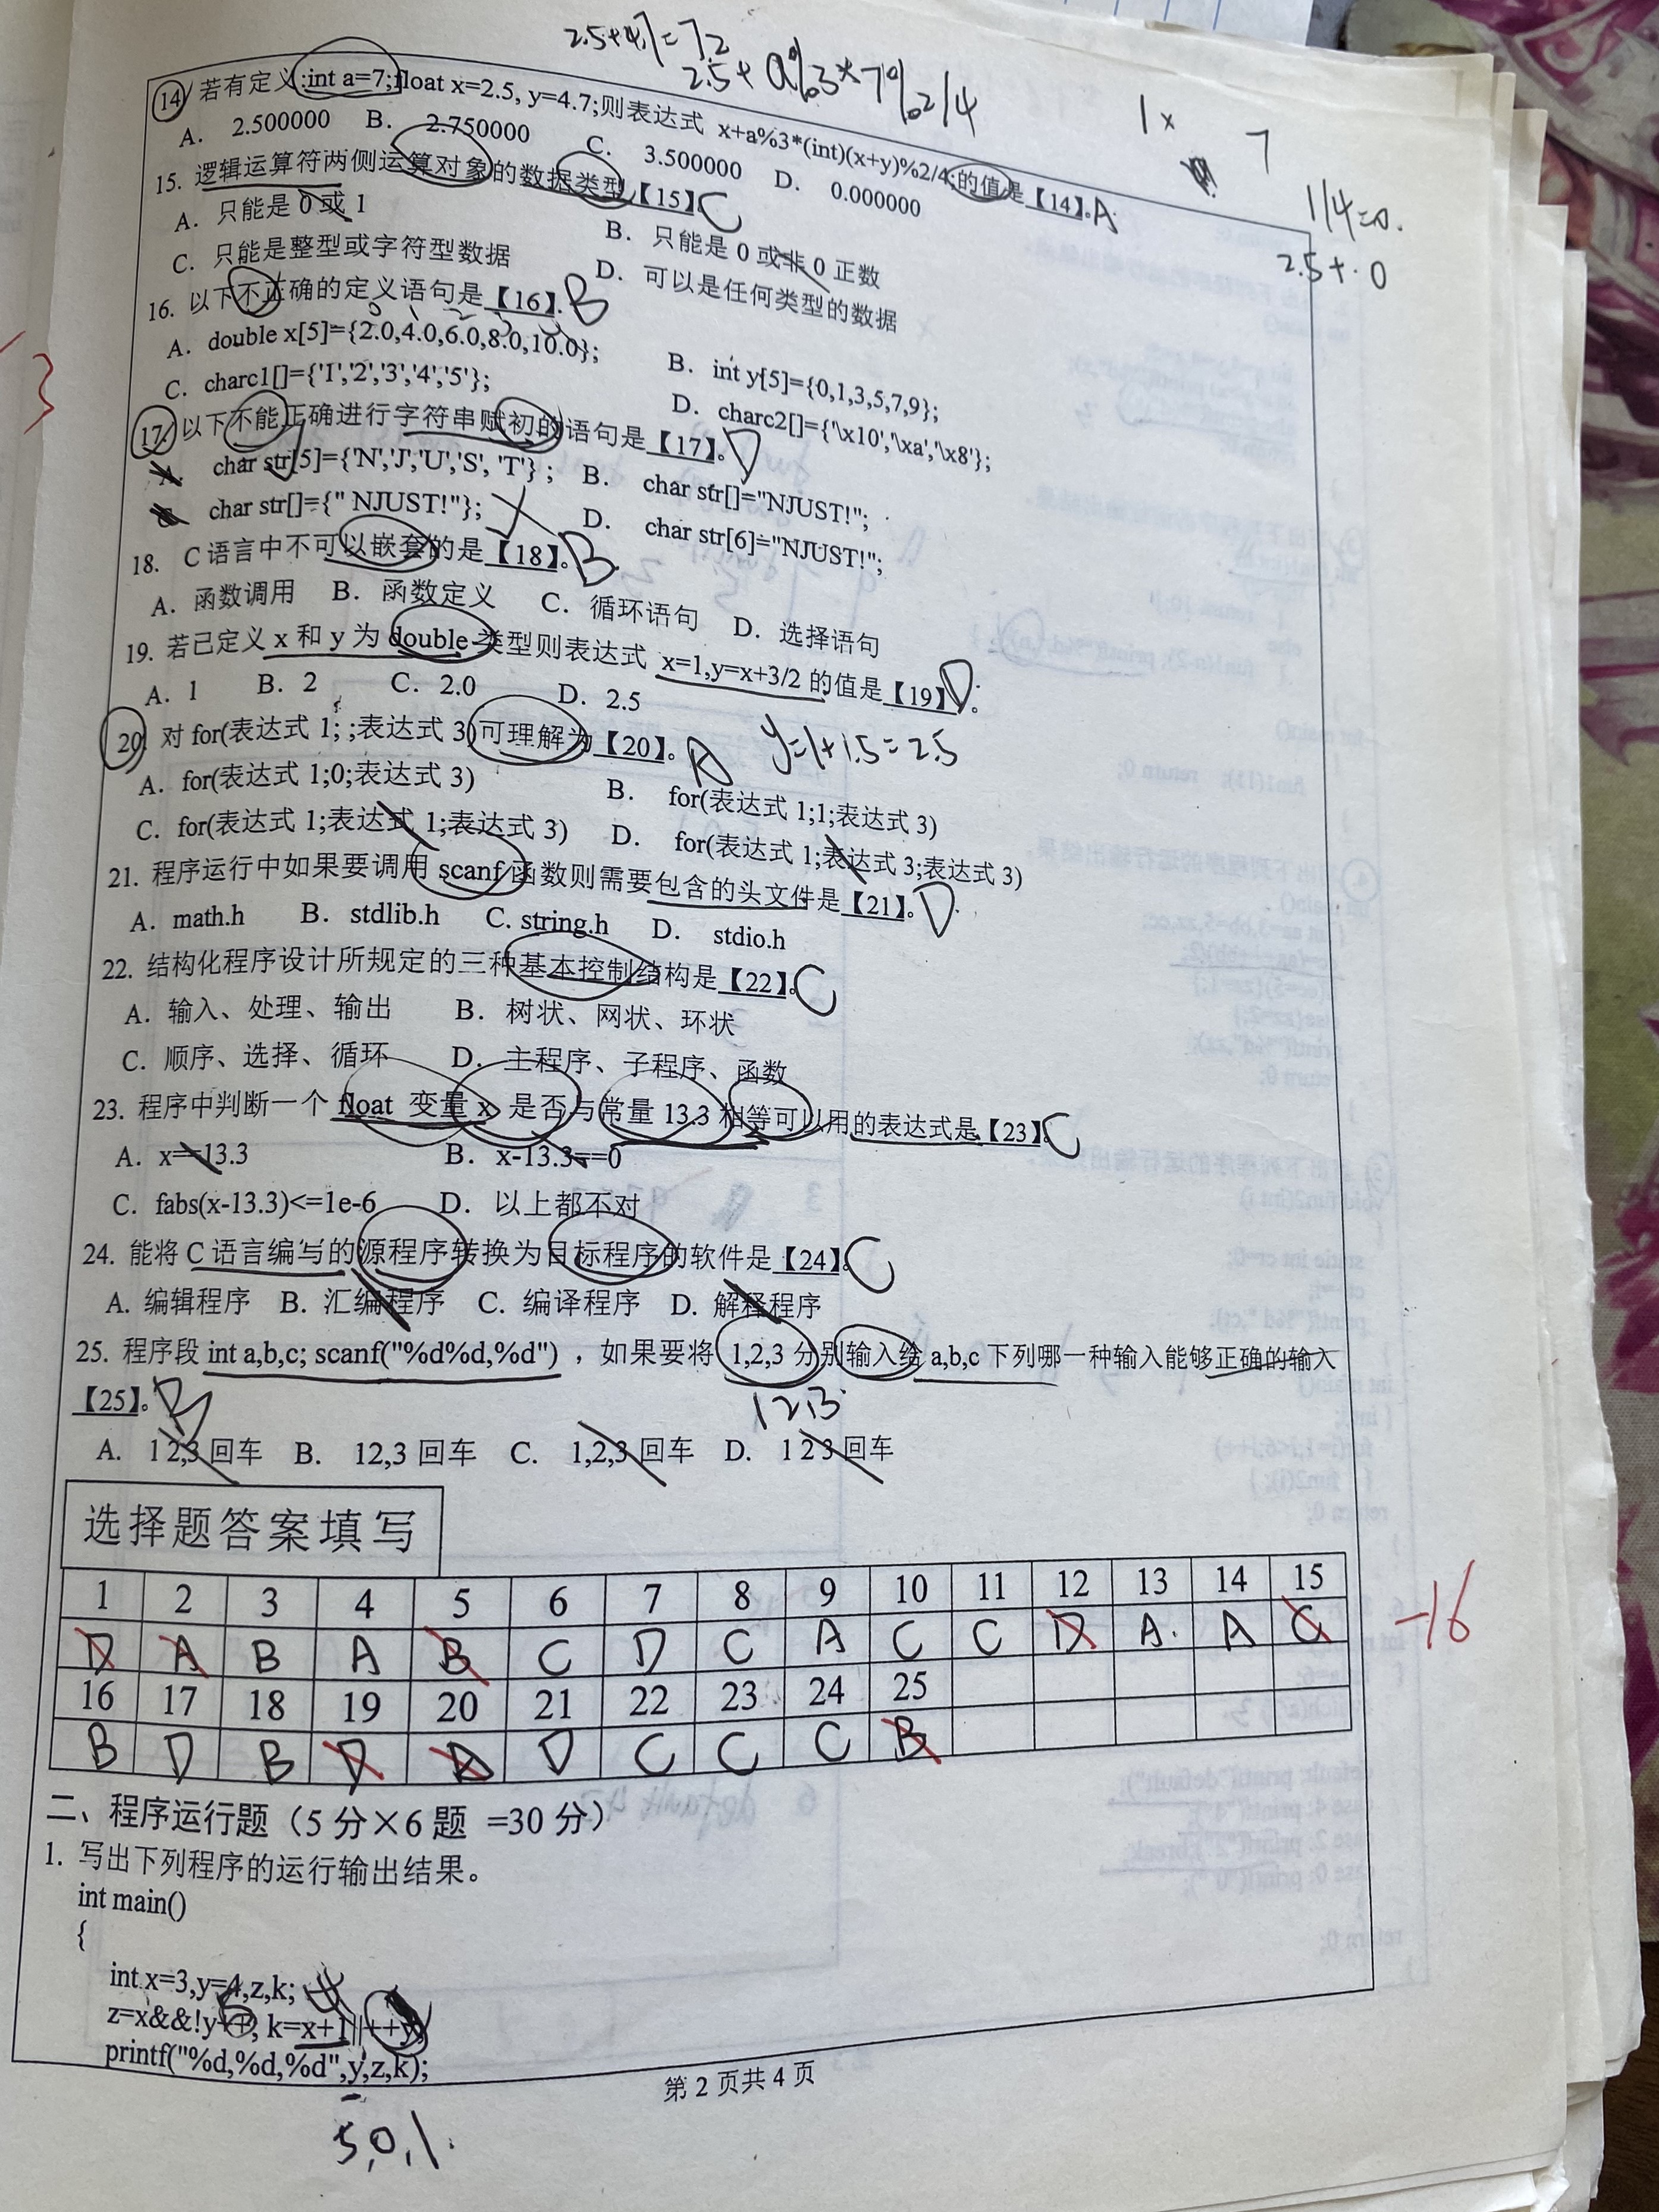 2.5+4.7=7.2
2.5+a%3*7%2/4
1×
7
1/4=0.
2.5+.0
14. 若有定义:int a=7;float x=2.5, y=4.7;则表达式 x+a%3*(int)(x+y)%2/4;的值是【14】。A
A. 2.500000 B. 2.750000 C. 3.500000 D. 0.000000
15. 逻辑运算符两侧运算对象的数据类型【15】C
A. 只能是 0 或 1 B. 只能是 0 或非 0 正数
C. 只能是整型或字符型数据 D. 可以是任何类型的数据
16. 以下不正确的定义语句是【16】. B
A. double x[5]={2.0,4.0,6.0,8.0,10.0}; B. int y[5]={0,1,3,5,7,9};
C. charc1[]={'1','2','3','4','5'}; D. charc2[]={'\x10','\xa','\x8'};
3
17. 以下不能正确进行字符串赋初的语句是【17】。D
A. char str[5]={'N','J','U','S', 'T'} ; B. char str[]="NJUST!";
C char str[]={" NJUST!"}; D. char str[6]="NJUST!";
18. C 语言中不可以嵌套的是【18】。B
A. 函数调用 B. 函数定义 C. 循环语句 D. 选择语句
19. 若已定义 x 和 y 为 double 类型则表达式 x=1,y=x+3/2 的值是【19】D。
A. 1 B. 2 C. 2.0 D. 2.5
y=1+1.5=2.5
20. 对 for(表达式 1; ;表达式 3)可理解为【20】。A
A. for(表达式 1;0;表达式 3) B. for(表达式 1;1;表达式 3)
C. for(表达式 1;表达式 1;表达式 3) D. for(表达式 1;表达式 3;表达式 3)
21. 程序运行中如果要调用 scanf 函数则需要包含的头文件是【21】。D
A. math.h B. stdlib.h C. string.h D. stdio.h
22. 结构化程序设计所规定的三种基本控制结构是【22】。C
A. 输入、处理、输出 B. 树状、网状、环状
C. 顺序、选择、循环 D. 主程序、子程序、函数
23. 程序中判断一个 float 变量 x 是否与常量 13.3 相等可以用的表达式是【23】。C
A. x==13.3 B. x-13.3==0
C. fabs(x-13.3)<=1e-6 D. 以上都不对
24. 能将 C 语言编写的源程序转换为目标程序的软件是【24】。C
A. 编辑程序 B. 汇编程序 C. 编译程序 D. 解释程序
25. 程序段 int a,b,c; scanf("%d%d,%d") ，如果要将 1,2,3 分别输入给 a,b,c 下列哪一种输入能够正确的输入
【25】。B 12,3
A. 1 2,3 回车 B. 12,3 回车 C. 1,2,3 回车 D. 1 2 3 回车
选择题答案填写
1 2 3 4 5 6 7 8 9 10 11 12 13 14 15
D A B A B C D C A C C D A. A C
-16
16 17 18 19 20 21 22 23 24 25
B D B D A D C C C B
二、程序运行题（5 分×6 题 =30 分）
1. 写出下列程序的运行输出结果。
int main()
{
int x=3,y=4,z,k; 4
z=x&&!y++; k=x+1||++y;
printf("%d,%d,%d",y,z,k);
第 2 页共 4 页
5,0,1.